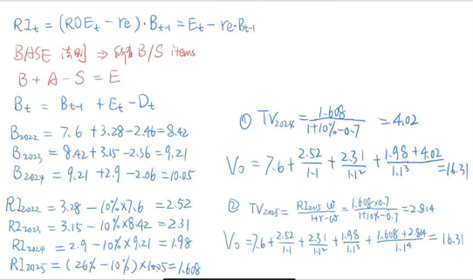 RI_t = (ROE_t - re) · B_t-1 = E_t - re · B_t-1
BASE 法则 ⇒ B/S items
B + A - S = E
B_t = B_t-1 + E_t - D_t
B_2022 = 7.6 + 3.28 - 2.46 = 8.42
B_2023 = 8.42 + 3.15 - 2.36 = 9.21
B_2024 = 9.21 + 2.9 - 2.06 = 10.05
RI_2022 = 3.28 - 10% × 7.6 = 2.52
RI_2023 = 3.15 - 10% × 8.42 = 2.31
RI_2024 = 2.9 - 10% × 9.21 = 1.98
RI_2025 = (26% - 10%) × 10.05 = 1.608
① TV_2024 = 1.608 / (1+10%-0.7) = 4.02
V_0 = 7.6 + 2.52/1.1 + 2.31/1.1² + (1.98 + 4.02)/1.1³ = 16.31
② TV_2025 = RI_2025 · ω / (1+r-ω) = 1.608×0.7 / (1+10%-0.7) = 2.814
V_0 = 7.6 + 2.52/1.1 + 2.31/1.1² + 1.98/1.1³ + (1.608 + 2.814)/1.1⁴ = 16.31